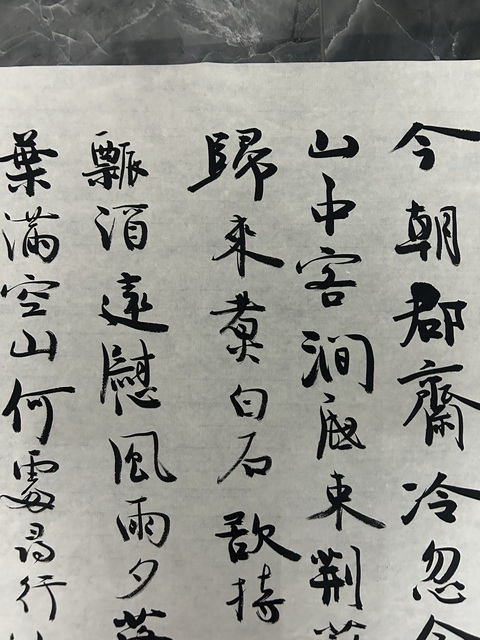 今朝郡齋冷忽
山中客澗底束荊
歸來煑白石欲持
瓢酒遠慰風雨夕
葉滿空山何處尋行